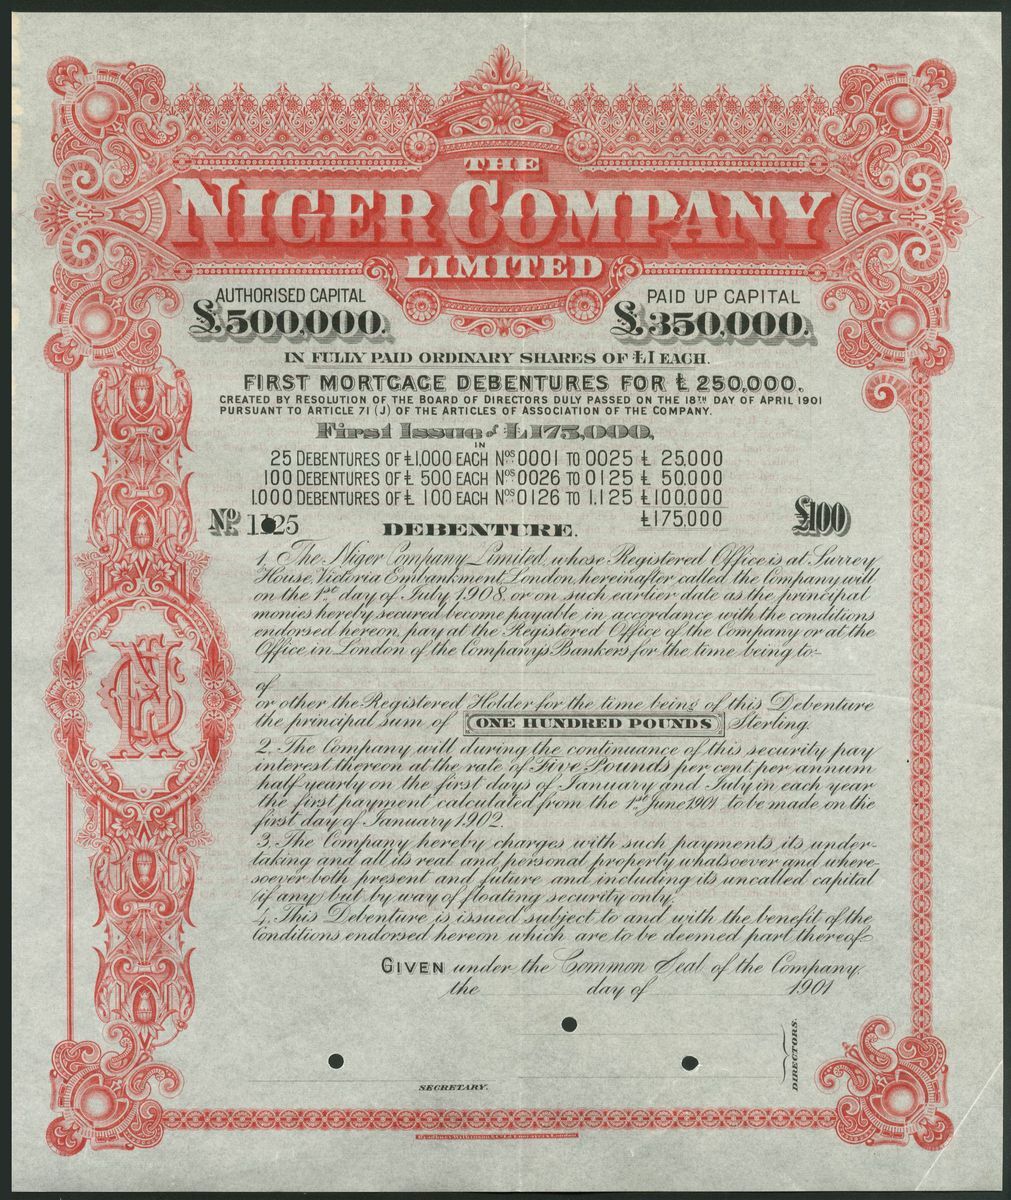 THE
NIGER COMPANY
LIMITED
AUTHORISED CAPITAL
£500,000.
PAID UP CAPITAL
£350,000.
IN FULLY PAID ORDINARY SHARES OF £1 EACH.
FIRST MORTGAGE DEBENTURES FOR £250,000.
CREATED BY RESOLUTION OF THE BOARD OF DIRECTORS DULY PASSED ON THE 18TH DAY OF APRIL 1901
PURSUANT TO ARTICLE 71 (J) OF THE ARTICLES OF ASSOCIATION OF THE COMPANY.
First Issue of £175,000,
IN
25 DEBENTURES OF £1,000 EACH Nos 0001 TO 0025 £ 25,000
100 DEBENTURES OF £ 500 EACH Nos 0026 TO 0125 £ 50,000
1,000 DEBENTURES OF £ 100 EACH Nos 0126 TO 1,125 £100,000
£175,000
No 1125
DEBENTURE.
£100
1. The Niger Company Limited, whose Registered Office is at Surrey
House, Victoria Embankment, London, hereinafter called the Company, will
on the 1st day of July 1908, or on such earlier date as the principal
monies hereby secured become payable in accordance with the conditions
endorsed hereon, pay at the Registered Office of the Company or at the
Office in London of the Company's Bankers for the time being to:-
of
or other the Registered Holder for the time being of this Debenture
the principal sum of ONE HUNDRED POUNDS Sterling.
2. The Company will during the continuance of this security pay
interest thereon at the rate of Five Pounds per cent. per annum
half-yearly on the first days of January and July in each year
the first payment calculated from the 1st June 1901 to be made on the
first day of January 1902.
3. The Company hereby charges with such payments its under-
taking and all its real and personal property whatsoever and where-
soever both present and future and including its uncalled capital
(if any) but by way of floating security only.
4. This Debenture is issued subject to and with the benefit of the
Conditions endorsed hereon which are to be deemed part thereof.
GIVEN under the Common Seal of the Company,
the day of 1901
DIRECTORS.
SECRETARY.